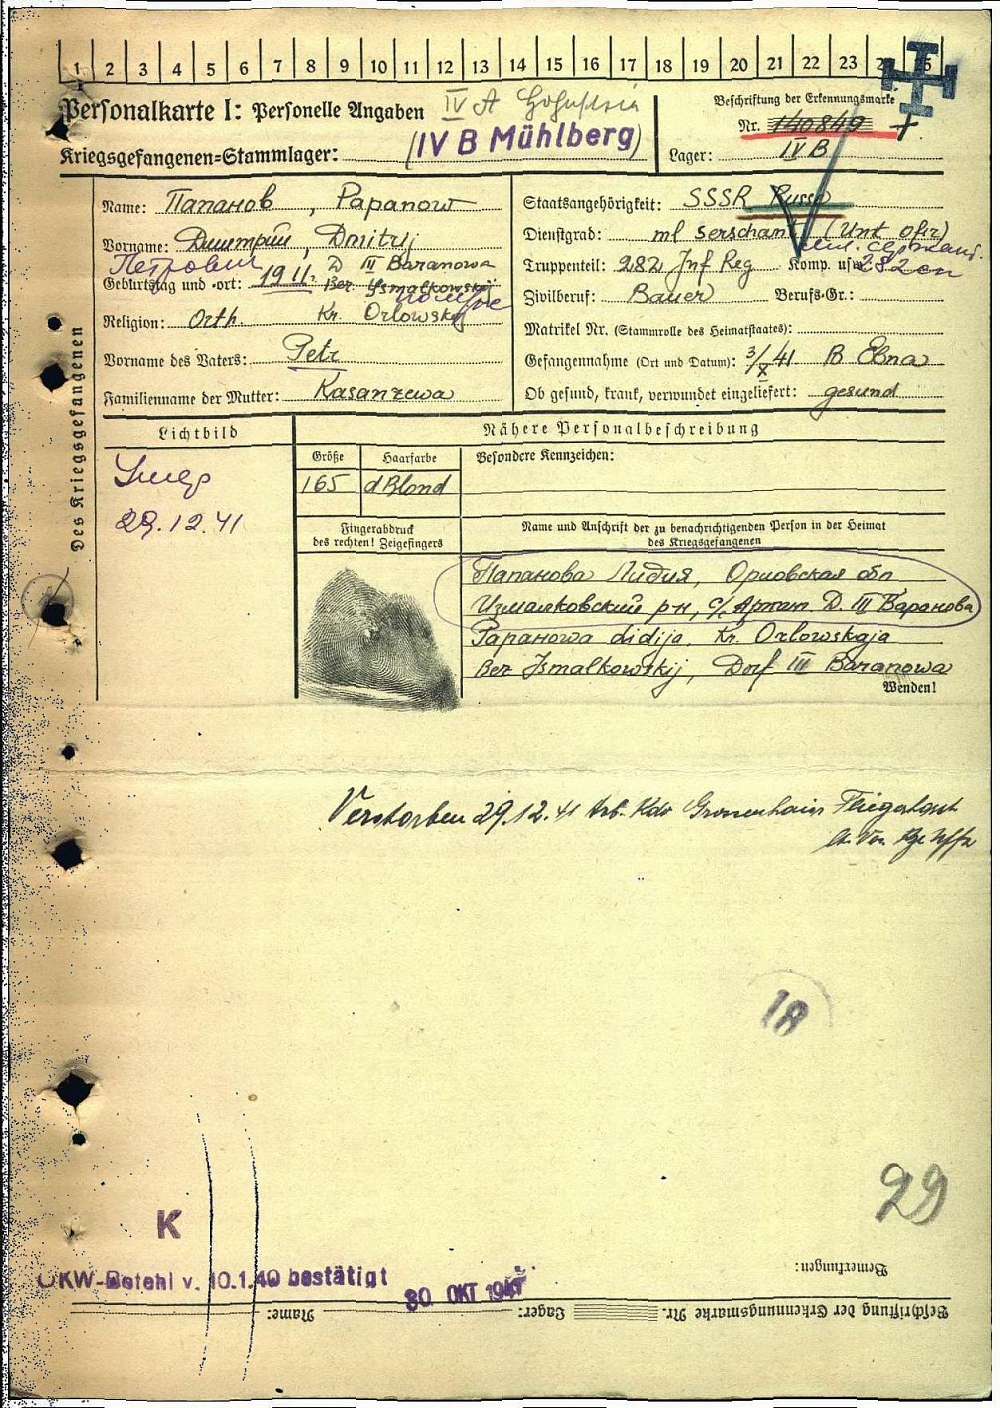 1 2 3 4 5 6 7 8 9 10 11 12 13 14 15 16 17 18 19 20 21 22 23 24 25
Personalkarte I: Personelle Angaben IV A
Beschriftung der Erkennungsmarke
Nr. 140849
Kriegsgefangenen=Stammlager: (IV B Mühlberg)
Lager: IV B
Des Kriegsgefangenen
Name: Папанов, Papanow
Vorname: Дмитрий, Dmitrij
Петрович D III Baranowa
Geburtstag und -ort: 1911. Bez. Ysmalkowskij
Religion: Orth. Kr. Orlowskij
Vorname des Vaters: Petr
Familienname der Mutter: Kasanzewa
Staatsangehörigkeit: SSSR Russe
Dienstgrad: ml serschant (Unt ofiz)
мл. сержант
Truppenteil: 282 Inf Reg Komp. usw. 282 сп
Zivilberuf: Bauer Berufs-Gr.:
Matrikel Nr. (Stammrolle des Heimatstaates):
Gefangennahme (Ort und Datum): 3/X 41
Ob gesund, krank, verwundet eingeliefert: gesund
Lichtbild
Умер
29.12.41
Nähere Personalbeschreibung
Größe Haarfarbe Besondere Kennzeichen:
165 dBlond
Fingerabdruck
des rechten! Zeigefingers
Name und Anschrift der zu benachrichtigenden Person in der Heimat
des Kriegsgefangenen
Папанова Лидия, Орловская обл
Измалковский р-н, с/ Д. III Баранова
Papanowa Lidija, Kr. Orlowskaja
Bez Ismalkowskij, Dorf III Baranowa
Wenden!
Verstorben 29.12.41 Arb. Kdo Grossenhain Fliegerhorst
18
29
K
OKW-Befehl v. 10.1.40 bestätigt
30. OKT 1941
Bemerkungen:
Beschriftung der Erkennungsmarke Nr. Lager: Name: